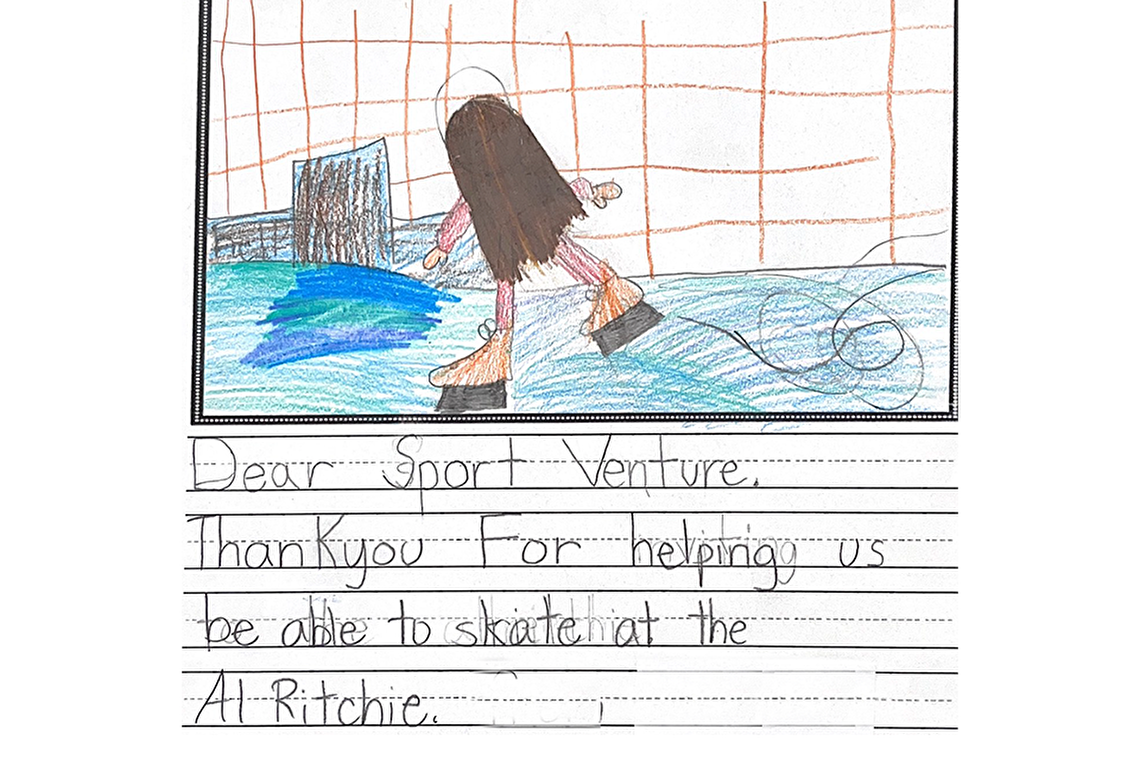 Dear Sport Venture.
Thankyou For helping us
be able to skate at the
Al Ritchie.